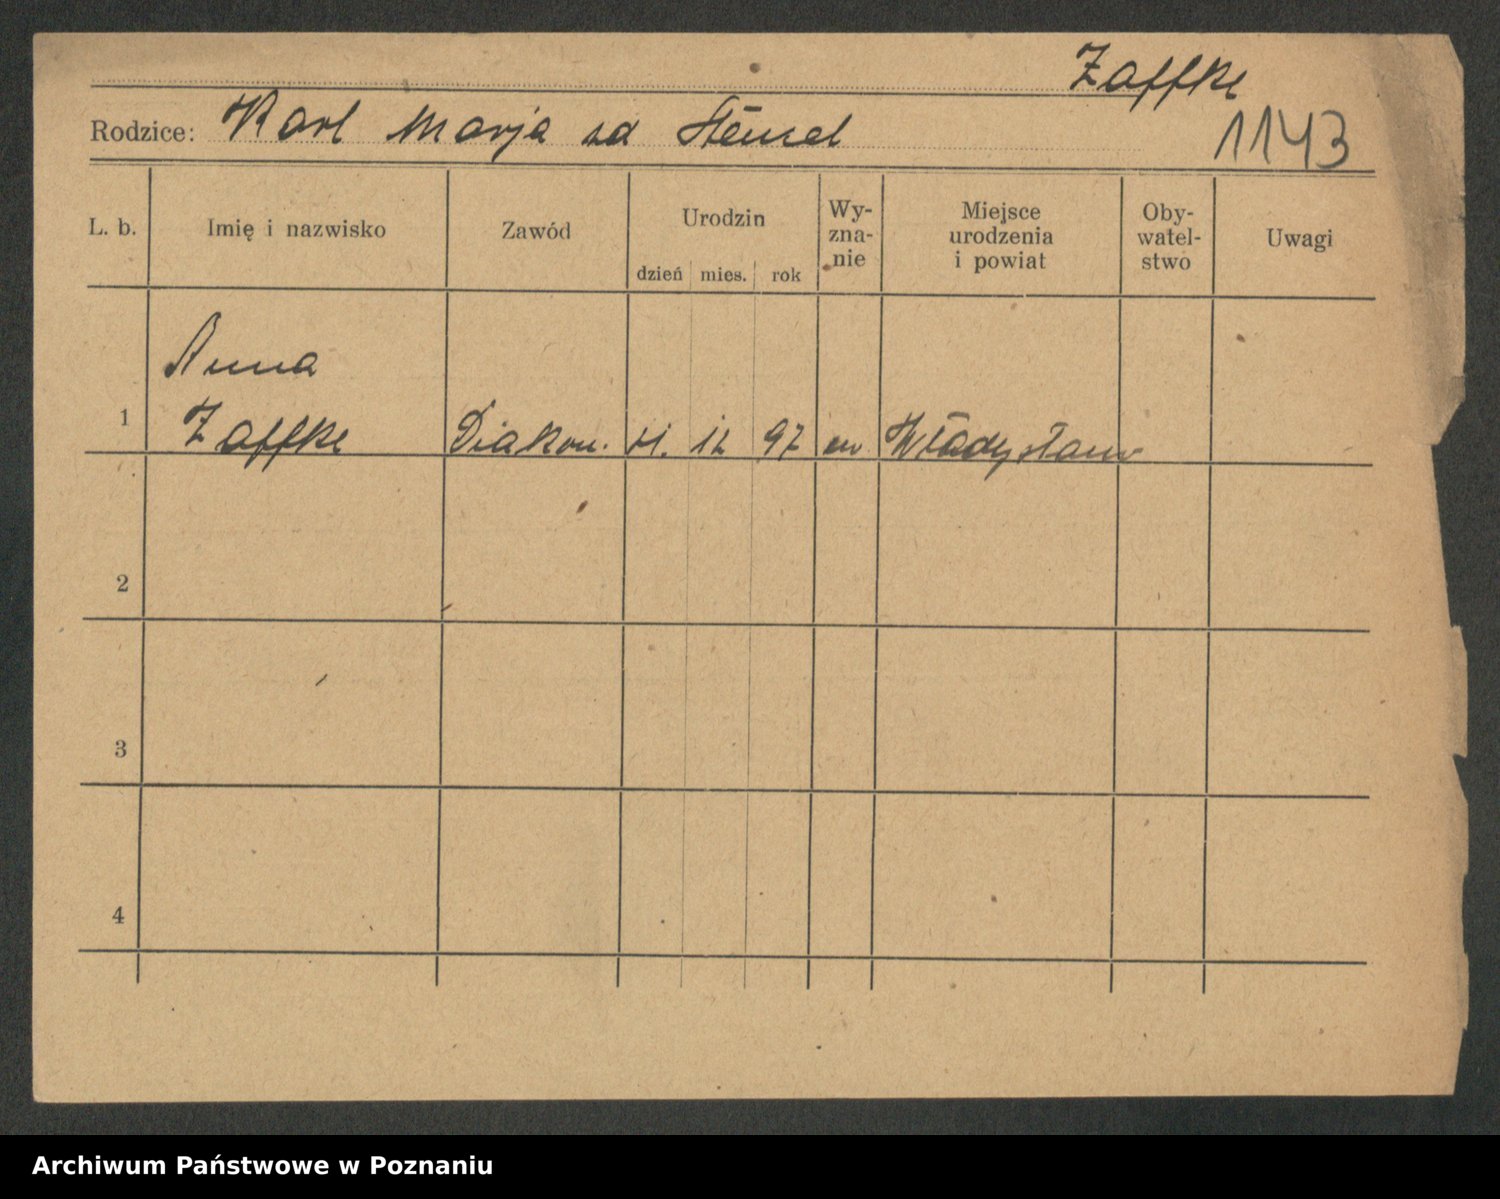 Zaffke
Rodzice: Karl Marja zd Hensel
1143
L. b. Imię i nazwisko Zawód Urodzin dzień mies. rok Wy-zna-nie Miejsce urodzenia i powiat Oby-watel-stwo Uwagi
Anna
1 Zaffke Diakon. 12 97 ew Władysław
2
3
4
Archiwum Państwowe w Poznaniu